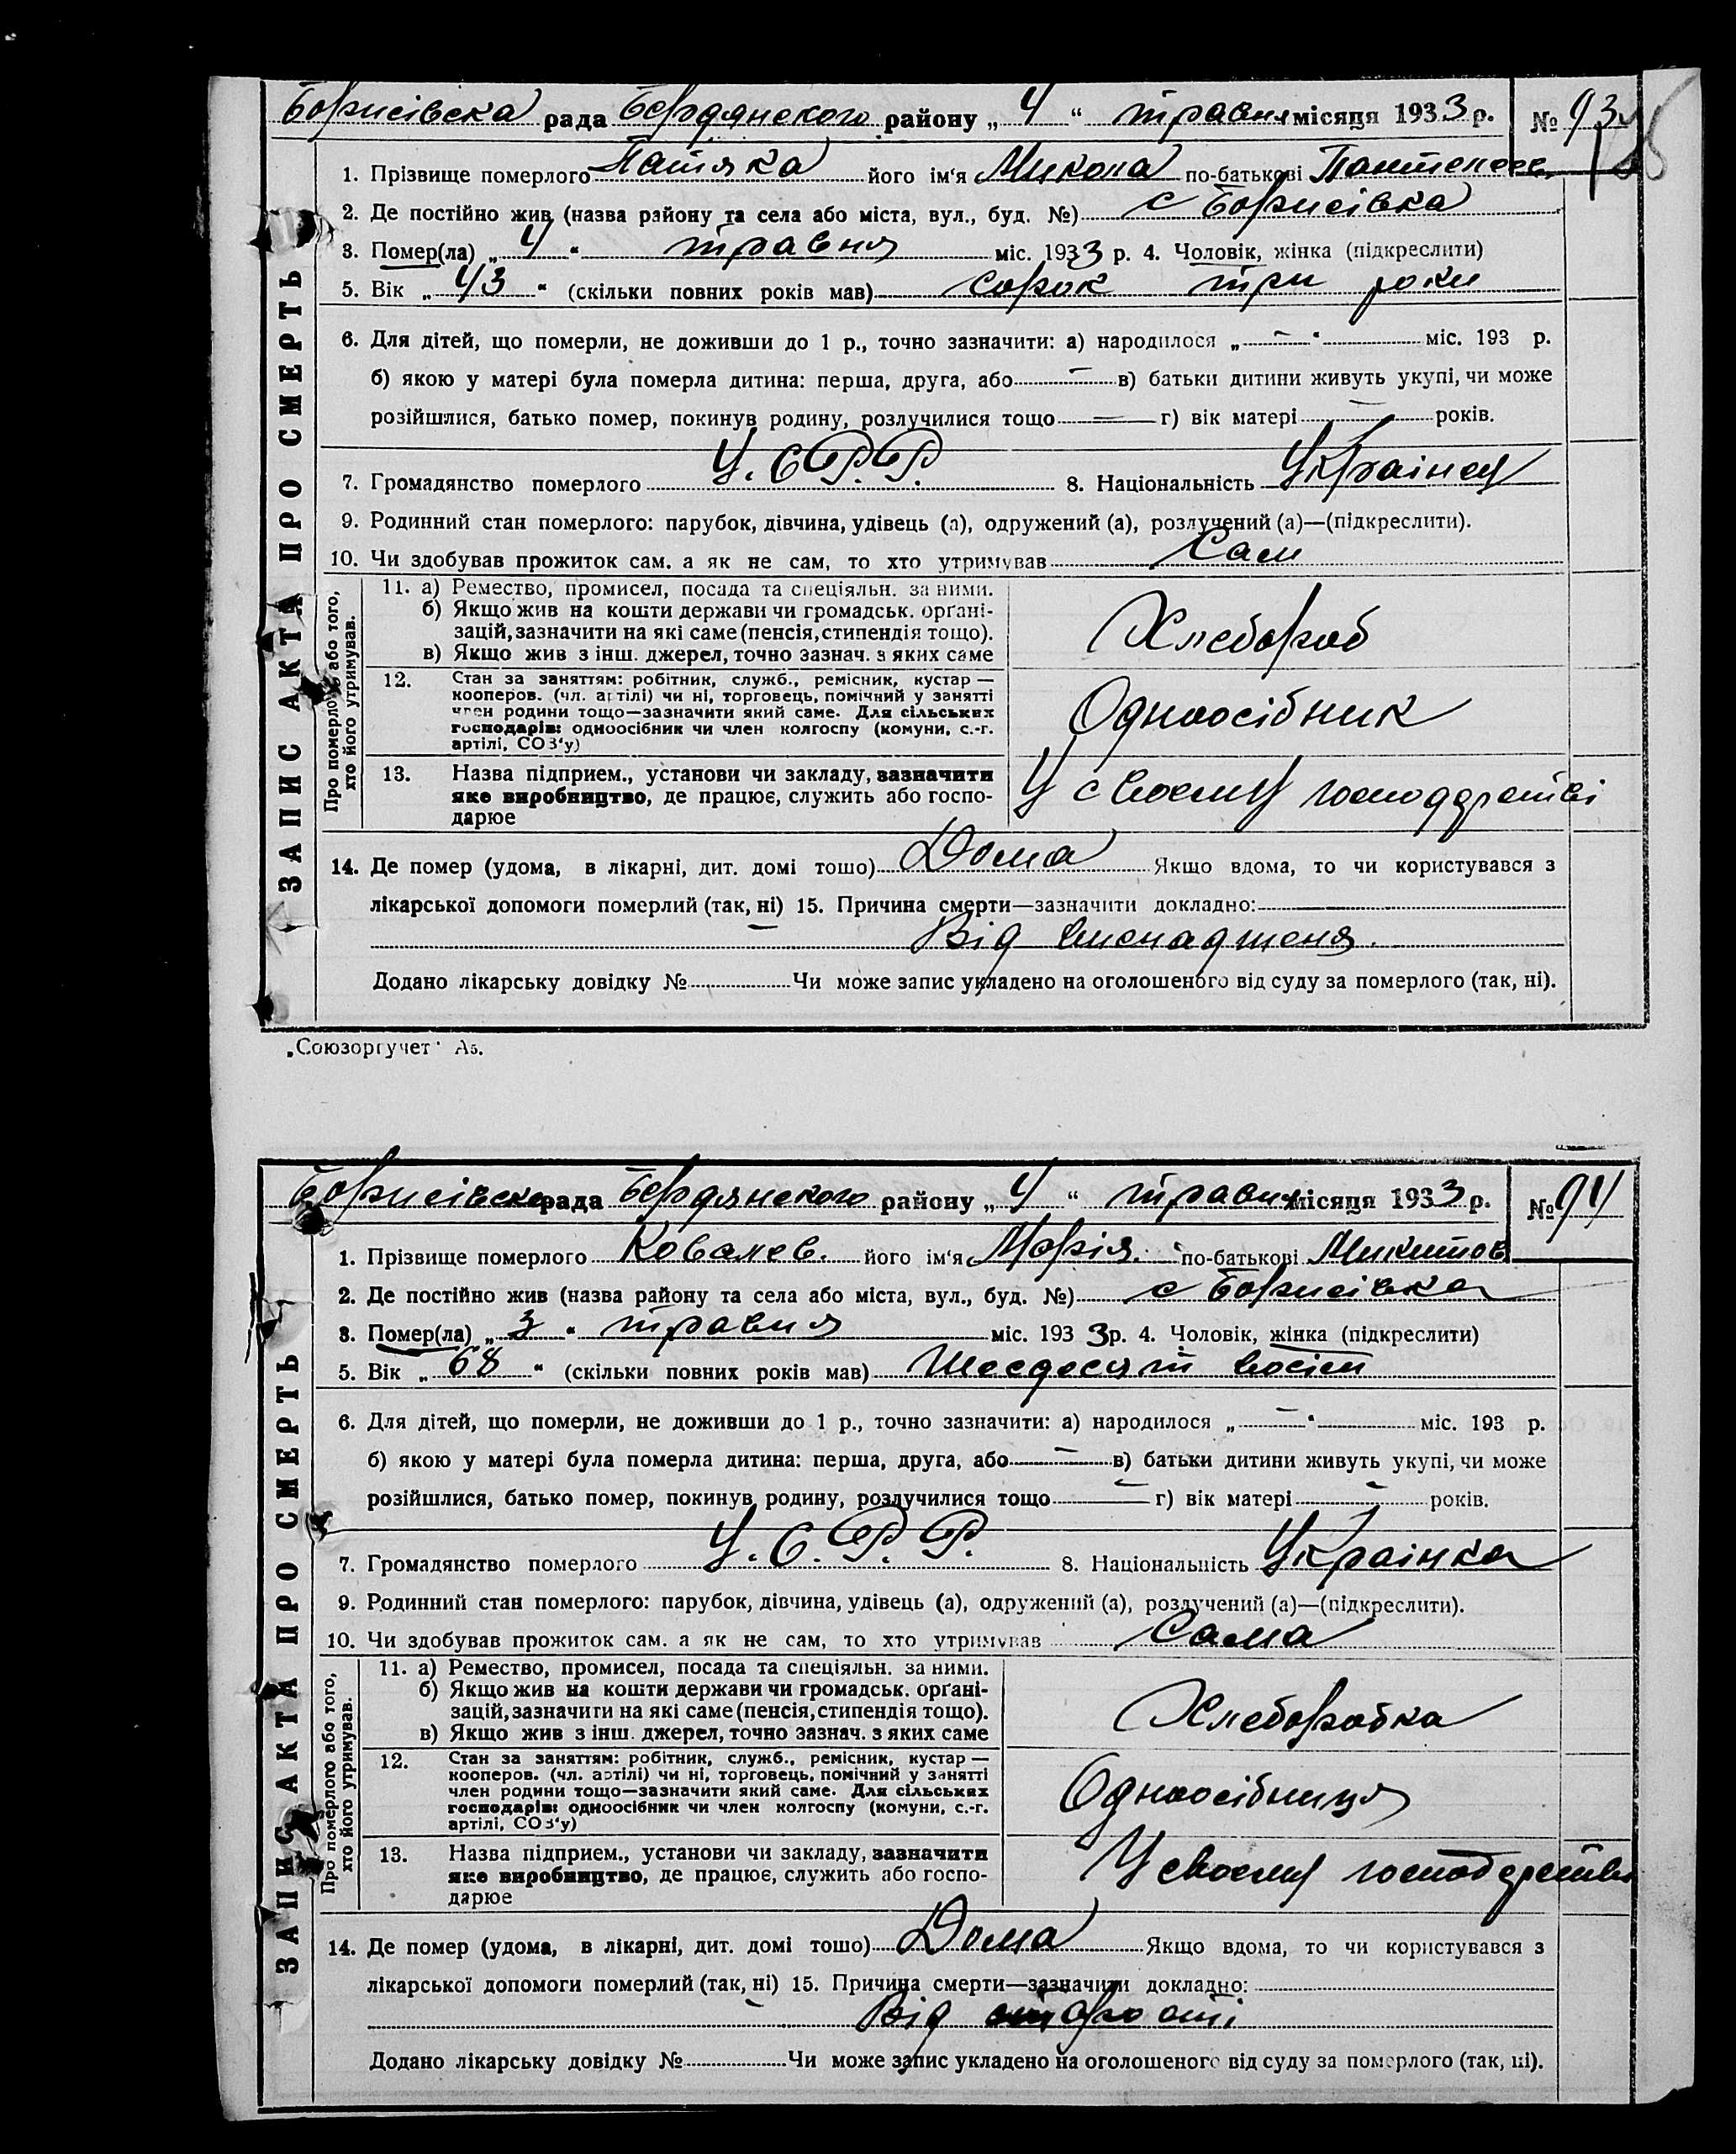 Борисівска рада Бердянского району „ 4 “ травня місяця 1933 р. № 93
1. Прізвище померлого Патяка його ім'я Микола по-батькові
2. Де постійно жив (назва району та села або міста, вул., буд. №) с Борисівка
3. Помер(ла) „ 4 “ травня міс. 1933 р. 4. Чоловік, жінка (підкреслити)
5. Вік „ 43 “ (скільки повних років мав) сорок три роки
6. Для дітей, що померли, не доживши до 1 р., точно зазначити: а) народилося „ — “ міс. 193 р.
б) якою у матері була померла дитина: перша, друга, або — в) батьки дитини живуть укупі, чи може
розійшлися, батько помер, покинув родину, розлучилися тощо — г) вік матері — років.
7. Громадянство померлого У.С.Р.Р. 8. Національність Українец
9. Родинний стан померлого: парубок, дівчина, удівець (а), одружений (а), розлучений (а)—(підкреслити).
10. Чи здобував прожиток сам. а як не сам, то хто утримував Сам
ЗАПИС АКТА ПРО СМЕРТЬ
Про померлого або того, хто його утримував.
11. а) Ремество, промисел, посада та спеціяльн. за ними.
б) Якщо жив на кошти держави чи громадськ. орґані-
зацій, зазначити на які саме (пенсія, стипендія тощо).
в) Якщо жив з інш. джерел, точно зазнач. з яких саме
Хлебороб
12. Стан за заняттям: робітник, служб., ремісник, кустар —
кооперов. (чл. артілі) чи ні, торговець, помічний у занятті
член родини тощо—зазначити який саме. Для сільських
господарів: одноосібник чи член колгоспу (комуни, с.-г.
артілі, СОЗ'у)
Одноосібник
13. Назва підприєм., установи чи закладу, зазначити
яке виробництво, де працює, служить або госпо-
дарює
У своему господрстві
14. Де помер (удома, в лікарні, дит. домі тощо) Дома Якщо вдома, то чи користувався з
лікарської допомоги померлий (так, ні) 15. Причина смерти—зазначити докладно:
Від виснадженя.
Додано лікарську довідку № Чи може запис укладено на оголошеного від суду за померлого (так, ні).
„Союзоргучет“ А5.
Борисівска рада Бердянского району „ 4 “ травня місяця 1933 р. № 94
1. Прізвище померлого Ковалев. його ім'я Марія. по-батькові Микитов
2. Де постійно жив (назва району та села або міста, вул., буд. №) с Борисівка
3. Помер(ла) „ 3 “ травня міс. 1933 р. 4. Чоловік, жінка (підкреслити)
5. Вік „ 68 “ (скільки повних років мав) Шесдесят восім
6. Для дітей, що померли, не доживши до 1 р., точно зазначити: а) народилося „ — “ міс. 193 р.
б) якою у матері була померла дитина: перша, друга, або — в) батьки дитини живуть укупі, чи може
розійшлися, батько помер, покинув родину, розлучилися тощо — г) вік матері — років.
7. Громадянство померлого У.С.Р.Р. 8. Національність Українка
9. Родинний стан померлого: парубок, дівчина, удівець (а), одружений (а), розлучений (а)—(підкреслити).
10. Чи здобував прожиток сам. а як не сам, то хто утримував Сама
ЗАПИС АКТА ПРО СМЕРТЬ
Про померлого або того, хто його утримував.
11. а) Ремество, промисел, посада та спеціяльн. за ними.
б) Якщо жив на кошти держави чи громадськ. орґані-
зацій, зазначити на які саме (пенсія, стипендія тощо).
в) Якщо жив з інш. джерел, точно зазнач. з яких саме
Хлеборобка
12. Стан за заняттям: робітник, служб., ремісник, кустар —
кооперов. (чл. артілі) чи ні, торговець, помічний у занятті
член родини тощо—зазначити який саме. Для сільських
господарів: одноосібник чи член колгоспу (комуни, с.-г.
артілі, СОЗ'у)
Одноосібниця
13. Назва підприєм., установи чи закладу, зазначити
яке виробництво, де працює, служить або госпо-
дарює
У своему господерстві
14. Де помер (удома, в лікарні, дит. домі тощо) Дома Якщо вдома, то чи користувався з
лікарської допомоги померлий (так, ні) 15. Причина смерти—зазначити докладно:
Від старості
Додано лікарську довідку № Чи може запис укладено на оголошеного від суду за померлого (так, ні).